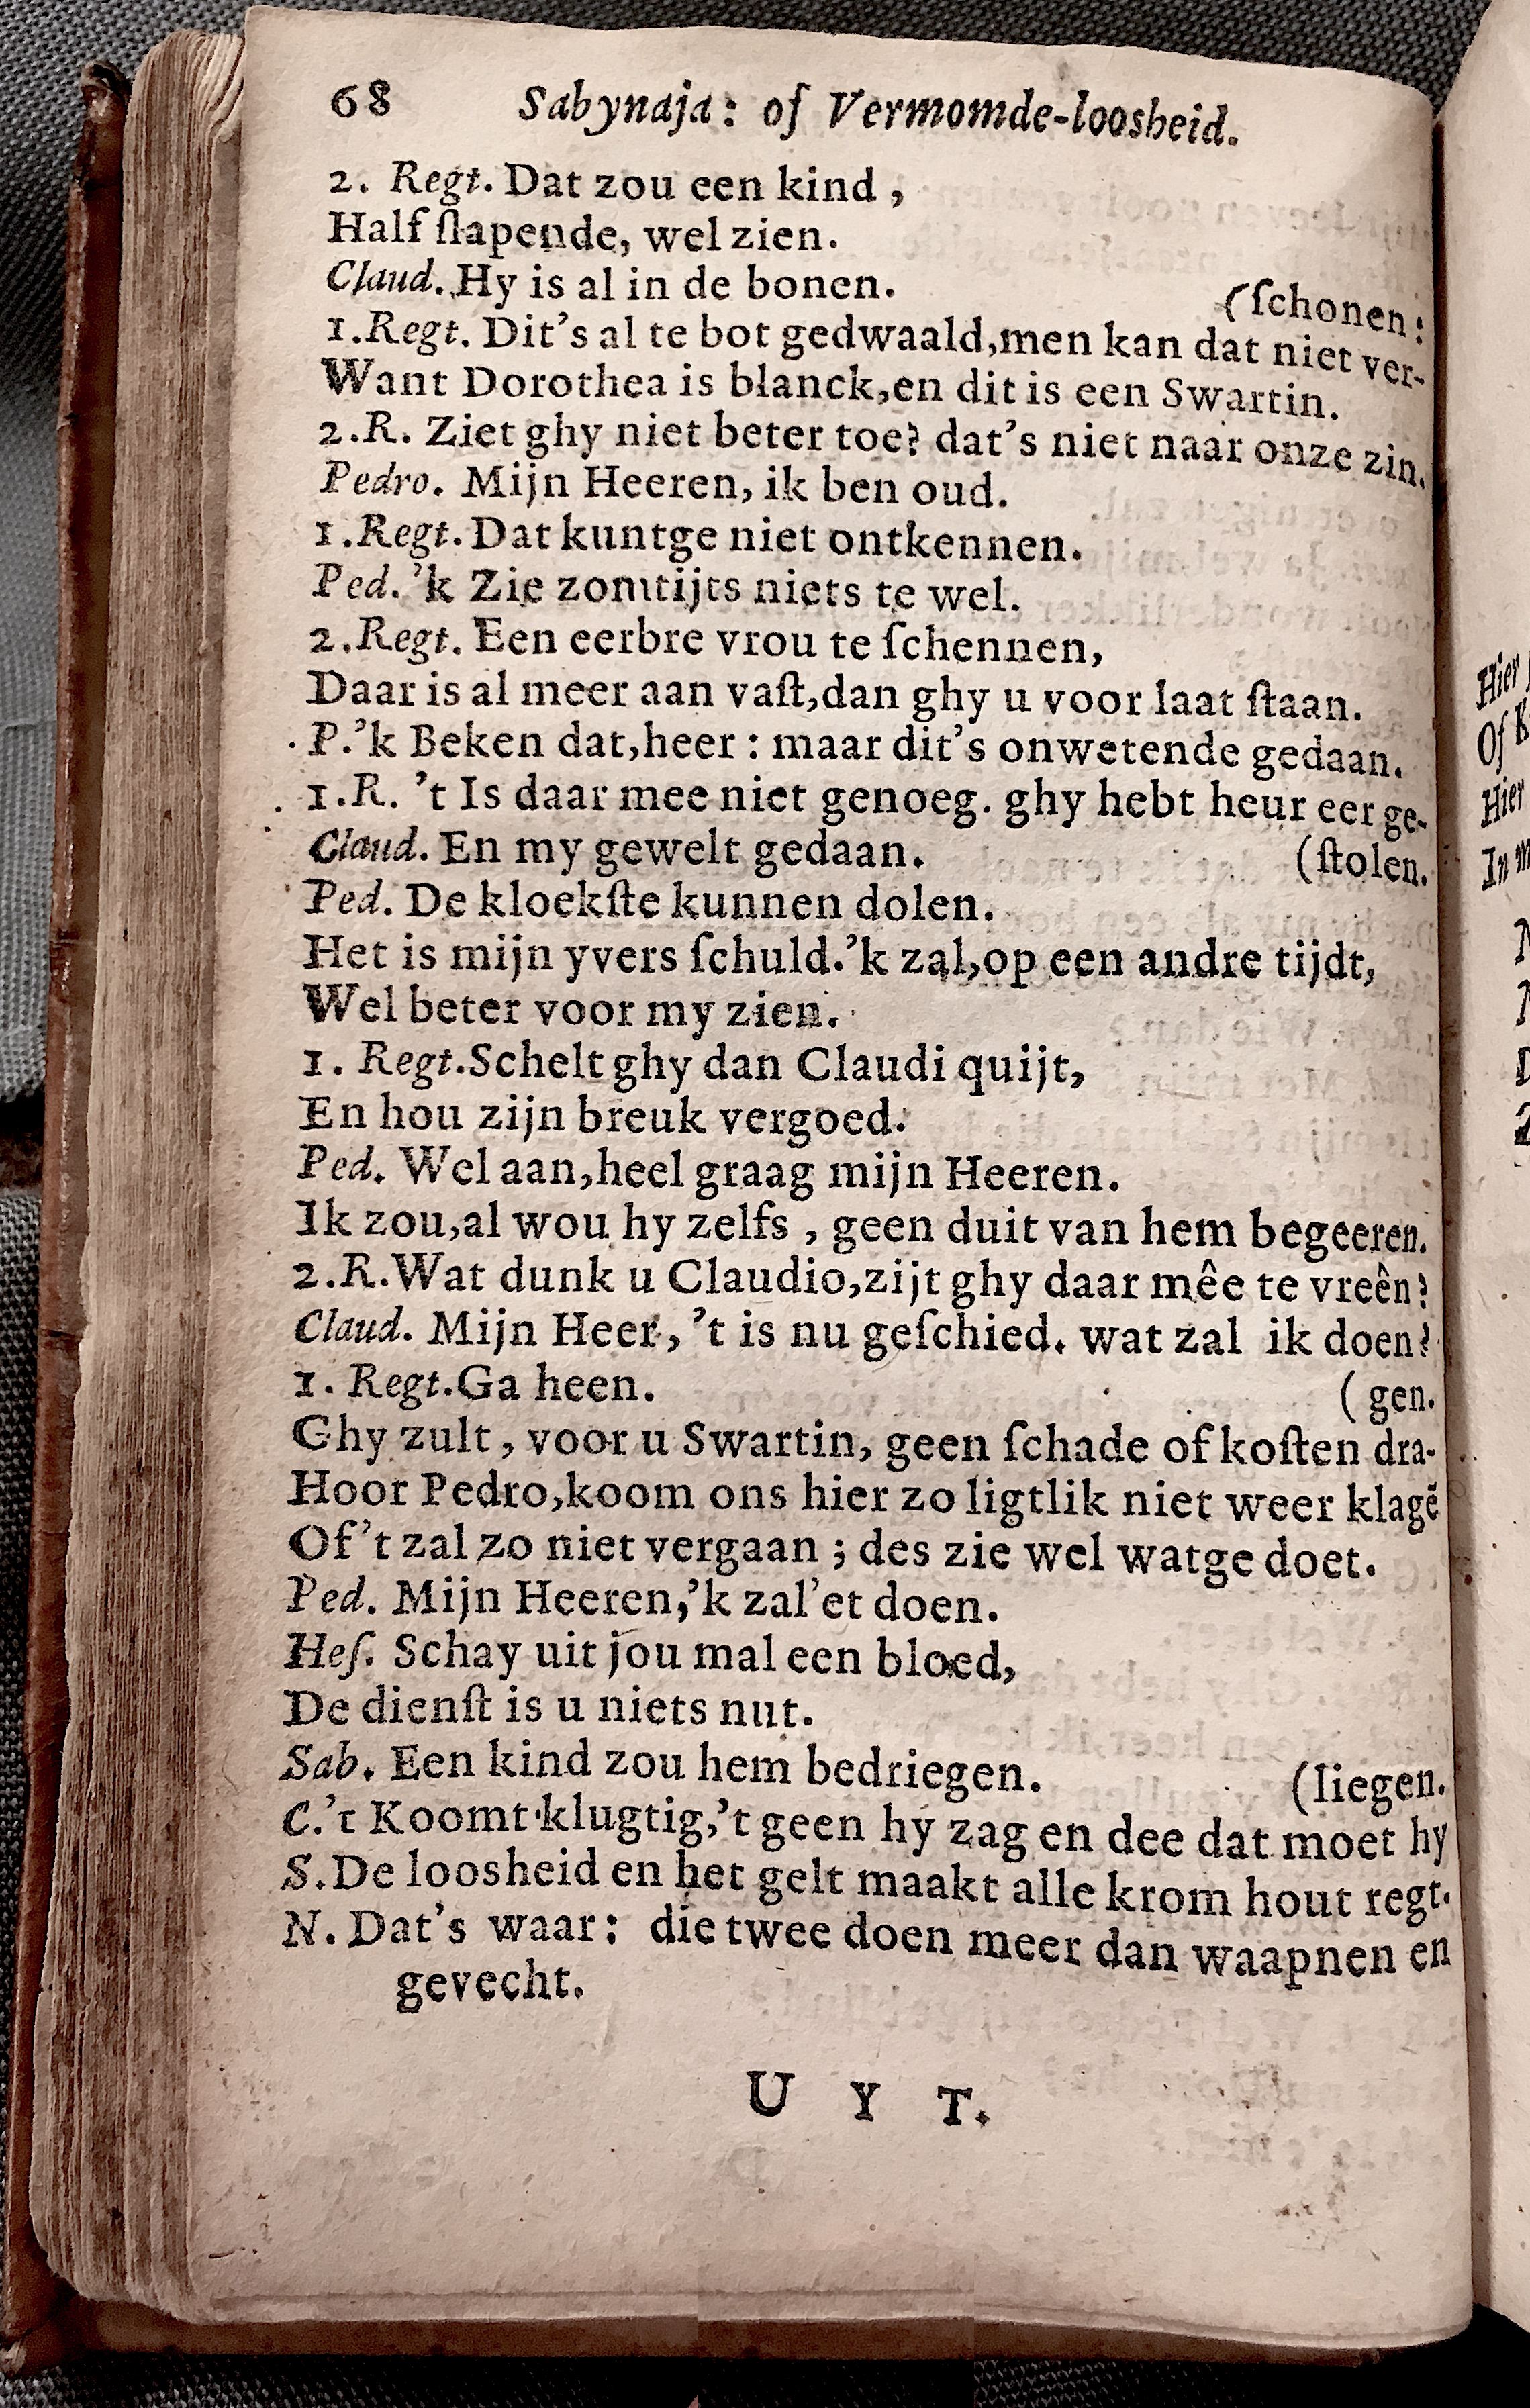 68 Sabynaja: of Vermomde-loosheid.
2. Regt. Dat zou een kind ,
Half ſlapende, wel zien.
Claud. Hy is al in de bonen.
(ſchonen:
1.Regt. Dit's al te bot gedwaald,men kan dat niet ver-
Want Dorothea is blanck,en dit is een Swartin.
2.R. Ziet ghy niet beter toe? dat's niet naar onze zin.
Pedro. Mijn Heeren, ik ben oud.
1.Regt. Dat kuntge niet ontkennen.
Ped.'k Zie zomtijts niets te wel.
2.Regt. Een eerbre vrou te ſchennen,
Daar is al meer aan vaſt,dan ghy u voor laat ſtaan.
P.'k Beken dat,heer : maar dit's onwetende gedaan.
1.R. 't Is daar mee niet genoeg. ghy hebt heur eer ge-
Claud. En my gewelt gedaan. (ſtolen.
Ped. De kloekſte kunnen dolen.
Het is mijn yvers ſchuld.'k zal,op een andre tijdt,
Wel beter voor my zien.
1. Regt.Schelt ghy dan Claudi quijt,
En hou zijn breuk vergoed.
Ped. Wel aan,heel graag mijn Heeren.
Ik zou,al wou hy zelfs , geen duit van hem begeeren.
2.R.Wat dunk u Claudio,zijt ghy daar mêe te vreên?
Claud. Mijn Heer, 't is nu geſchied. wat zal ik doen?
1. Regt.Ga heen. ( gen.
Ghy zult, voor u Swartin, geen ſchade of koſten dra-
Hoor Pedro,koom ons hier zo ligtlik niet weer klagẽ
Of't zal zo niet vergaan ; des zie wel watge doet.
Ped. Mijn Heeren,'k zal'et doen.
Heſ. Schay uit jou mal een bloed,
De dienſt is u niets nut.
Sab. Een kind zou hem bedriegen. (liegen.
C.'t Koomt klugtig,'t geen hy zag en dee dat moet hy
S.De loosheid en het gelt maakt alle krom hout regt.
N. Dat's waar: die twee doen meer dan waapnen en
gevecht.
U Y T.
Hier
Of
Hier
In